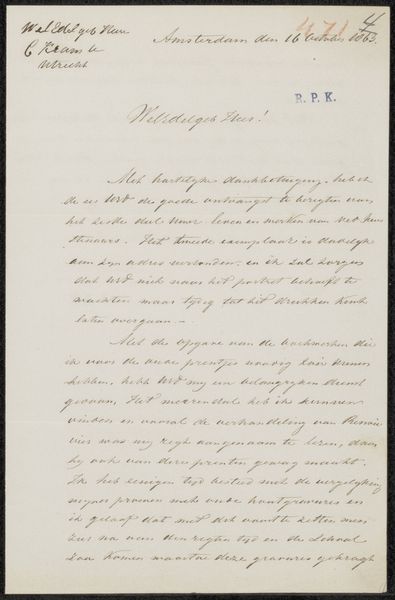 Wel Edel geb Heer
C Kramm te
Utrecht
471
4
Amsterdam den 16 October 1863.
R. P. K.
WelEdelgeb Heer!
Met hartelyke dankbetuiging heb ik
de eer UEd de goede ontvangst te berigten van
het zesde deel uwer leven en werken van
Het tweede exemplaar is dadelyk
aan zyn adres verzonden, en ik zal zorgen
dat UEd niet naar het portret behoeft te
wachten maar tydig tot het drukken kunt
laten overgaan.
Met de opgave van de boekwerken die
ik voor de oude prentjes noodig zou kunnen
hebben, hebt UEd my een belangryken dienst
gedaan, Het meerendeel heb ik kunnen
vinden en vooral de verhandeling van
vier was my regt aangenaam te lezen, daar
hy ook van deze prenten gewag maakt.
Ik heb eenigen tyd besteed met de vergelyking
myner proeven met oude houtgravures en
ik geloof dat met dit voort te zetten men
zeer na aan den regten tyd en de School
zou komen waartoe deze gravures gebragt